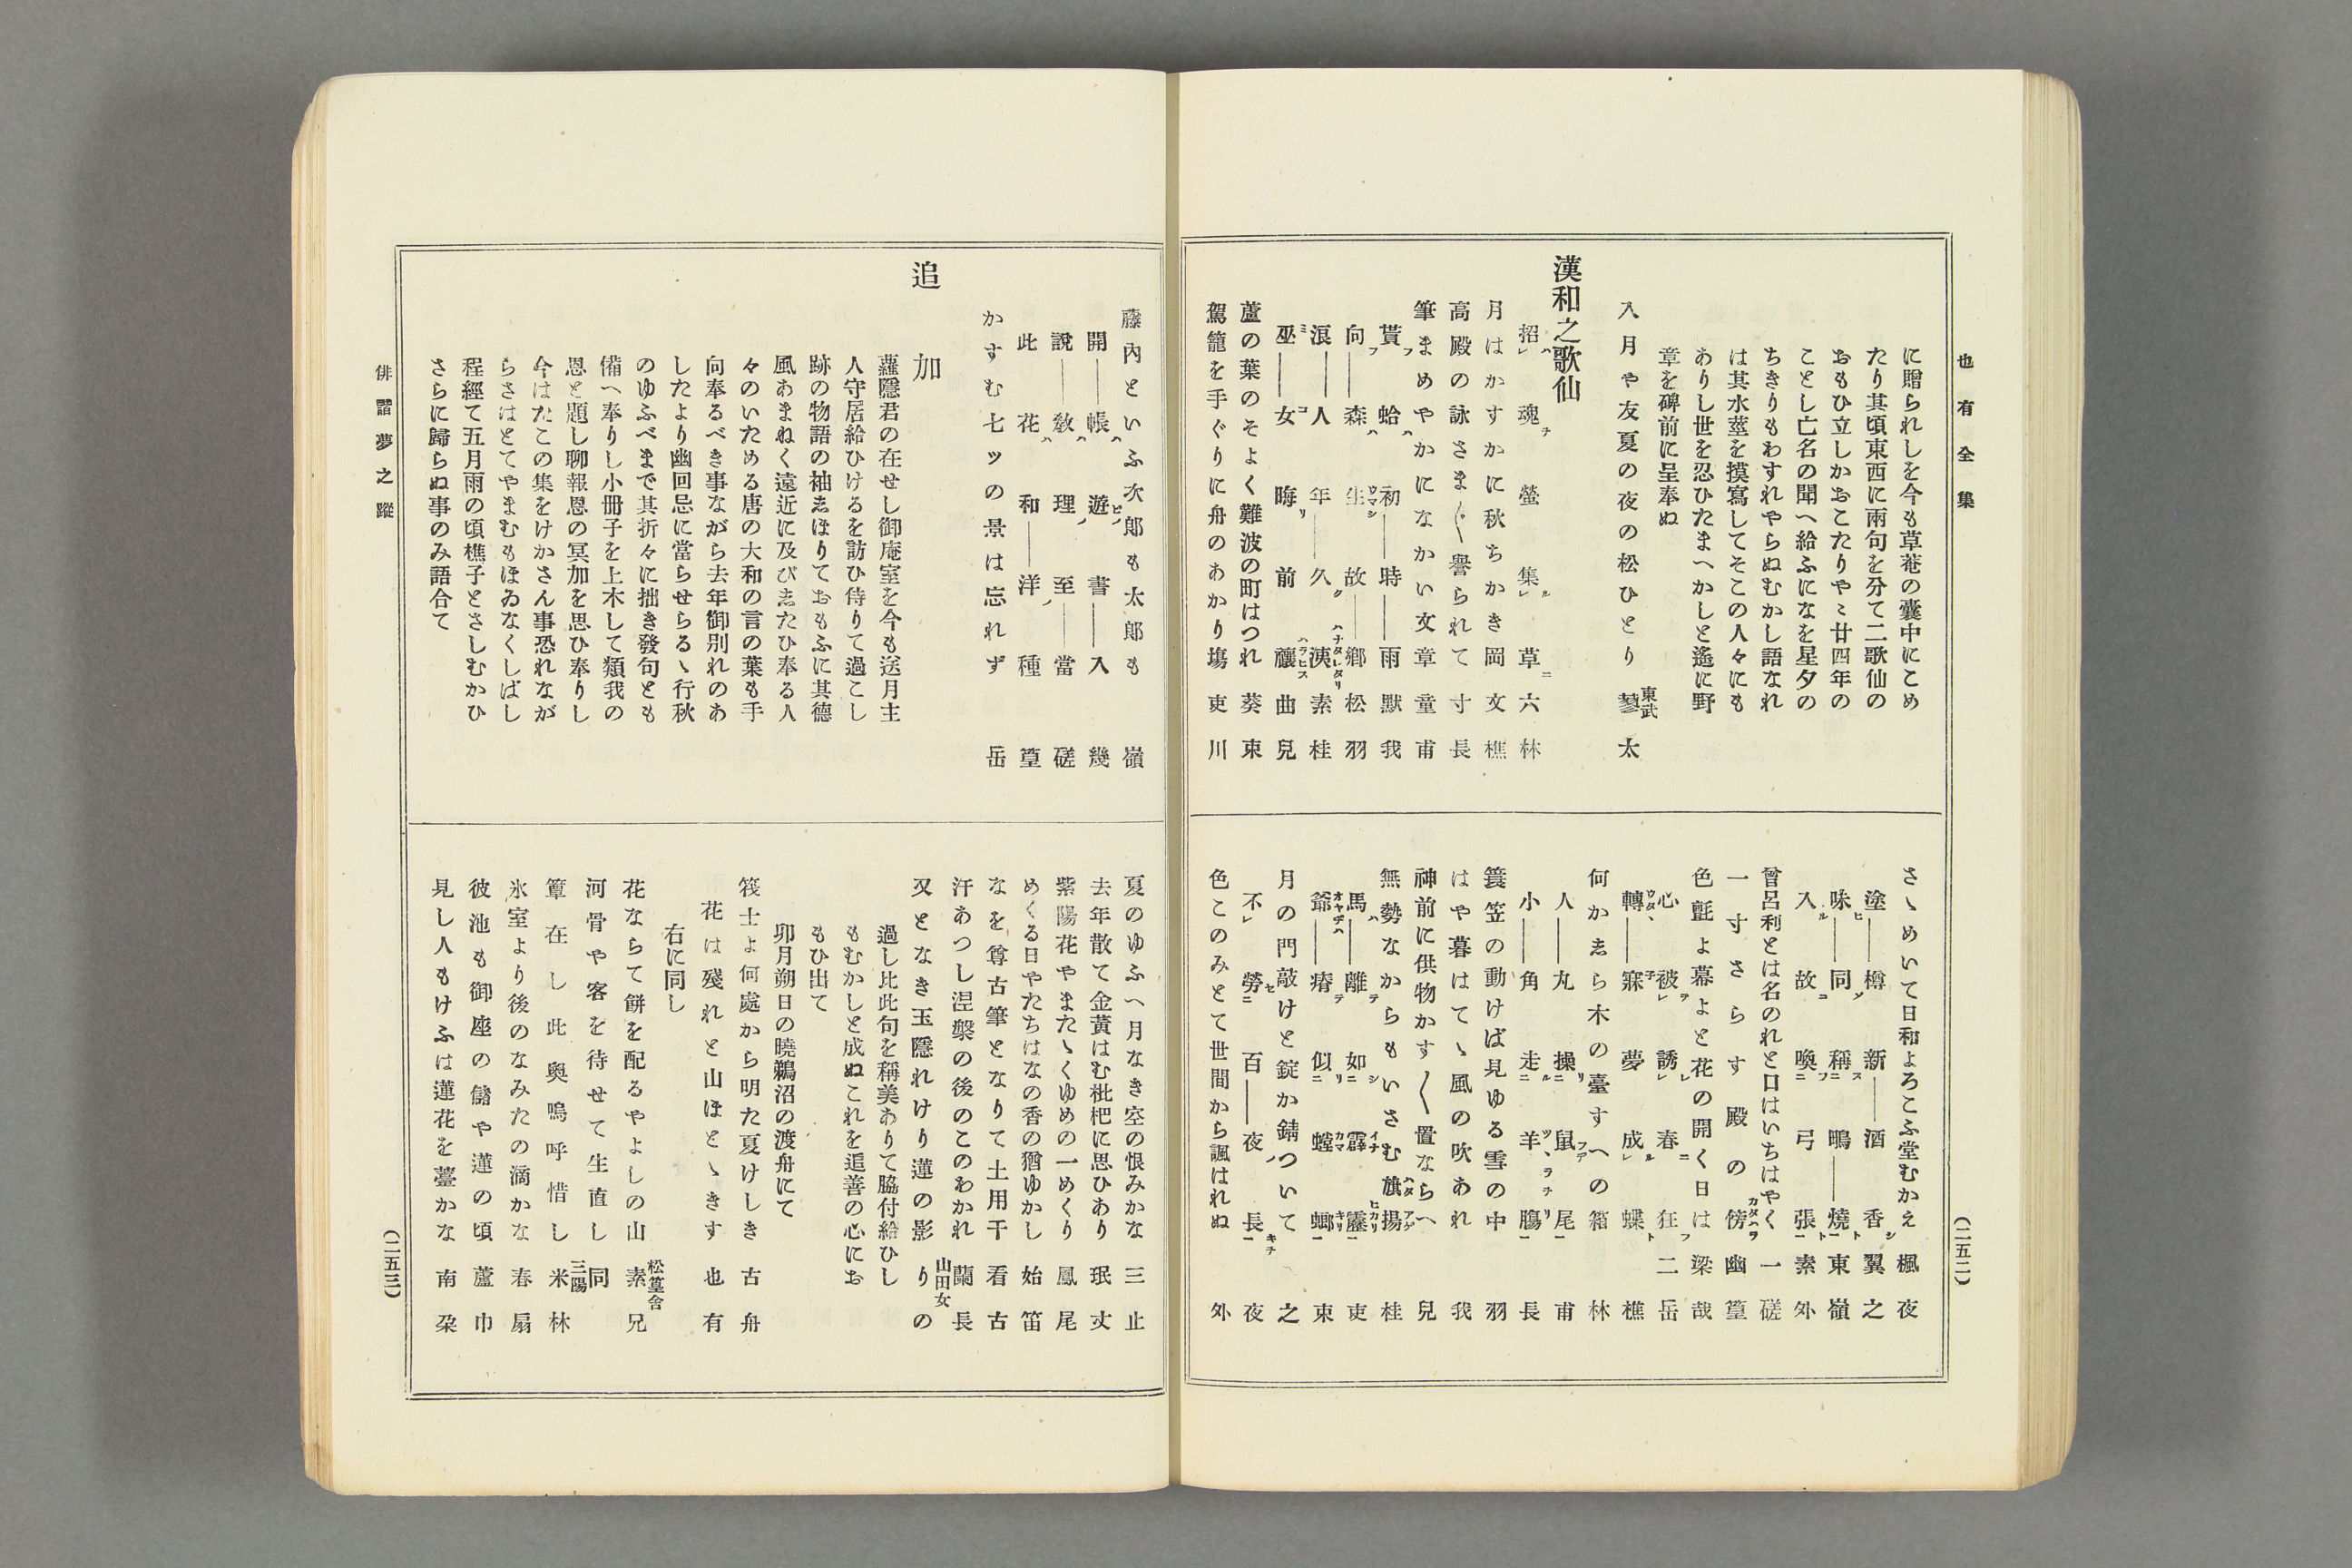 也有全集
に贈られしを今も草菴の嚢中にこめ
たり其頃東西に兩句を分て二歌仙の
おもひ立しかおこたりやゝ廿四年の
ことし亡名の聞へ給ふになを星夕の
ちきりもわすれやらぬむかし語なれ
は其水莖を摸寫してそこの人々にも
ありし世を忍ひたまへかしと遙に野
章を碑前に呈奉ぬ
入月や友夏の夜の松ひとり 東武 蓼太
漢和之歌仙
招レハ魂チ螢集レル草ニ 六林
月はかすかに秋ちかき岡 文樵
高殿の詠さま〴〵譽られて 寸長
筆まめやかになかい文章 童甫
蕡フ蛤ハ初―時―雨 默我
向フ―森ハ生ウマシ故―鄕 松羽
泿―人年―久ク洟ハナタレタリ 素桂
巫ミ―女コ晦リ前禳ハラヒス 曲兒
蘆の葉のそよく難波の町はつれ 葵束
駕籠を手ぐりに舟のあかり塲 吏川
さゝめいて日和よろこふ堂むかえ 楓夜
塗―樽新―酒香シ 翼之
味ヒ―同メ稱ニス鴫―燒一ト 東嶺
入ル故コ喚ニフ弓張一ト 素外
曾呂利とは名のれと口はいちはやく 一磋
一寸さらす殿の傍カタハラ 幽篁
色氈よ幕よと花の開く日は 梁哉
心被レテ誘レレ春ニ狂フ 二岳
轉ウタヽ―寐子夢成レル蝶ト 樵
何かゑら木の臺すへの箱 林
人―丸操ニリ鼠フデ尾一 甫
小―角走ニル羊ツヽラチ膓一リ 長
簑笠の動けば見ゆる雪の中 羽
はや暮はてゝ風の吹あれ 我
神前に供物かす〳〵置ならへ 兒
無勢なからもいさむ旗ハタ揚アゲ 桂
馬ハ―離テ如ニシ霹イナ靂一ヒカリ 吏
爺オヤヂハ―瘠テ似ニリ螳カマ螂一キリ 束
月の門敲けと錠か錆ついて 之
不レ勞ニセ百―夜ノ長一キチ 夜
色このみとて世間から諷はれぬ 外
(二五二)
藤內といふ次郎も太郎も 嶺
開―帳ハ遊ヒノ書―入 幾
說―敎ハ理ノ至―當 磋
此花ハ和―洋ノ種 篁
かすむ七ッの景は忘れず 岳
追加
蘿隱君の在せし御庵室を今も送月主
人守居給ひけるを訪ひ侍りて過こし
跡の物語の袖ゑほりておもふに其德
風あまねく遠近に及びゑたひ奉る人
々のいためる唐の大和の言の葉も手
向奉るべき事ながら去年御別れのあ
したより幽回忌に當らせらるゝ行秋
のゆふべまで其折々に拙き發句とも
備へ奉りし小冊子を上木して類我の
恩と題し聊報恩の冥加を思ひ奉りし
今はたこの集をけかさん事恐れなが
らさはとてやまむもほゐなくしばし
程經て五月雨の頃樵子とさしむかひ
さらに歸らぬ事のみ語合て
夏のゆふへ月なき空の恨みかな 三止
去年散て金黃はむ枇杷に思ひあり 珉𠀋
紫陽花やまたゝくゆめの一めくり 鳳尾
めくる日やたちはなの香の猶ゆかし 始笛
なを尊古筆となりて土用干 看古
汗あつし涅槃の後のこのわかれ 蘭長
又となき玉隱れけり蓮の影 山田女 りの
過し比此句を稱美ありて脇付給ひし
もむかしと成ぬこれを追善の心にお
もひ出て
卯月朔日の曉鵜沼の渡舟にて
筏士よ何處から明た夏けしき 古舟
花は殘れと山ほとゝきす 也有
右に同し
花ならて餅を配るやよしの山 松篁舍 素兄
河骨や客を待せて生直し 同
簟在し此奥嗚呼惜し 三陽 米林
氷室より後のなみたの滴かな 春扇
彼池も御座の儲や蓮の頃 蘆巾
見し人もけふは蓮花を薹かな 南朶
俳諧夢之蹤
(二五三)